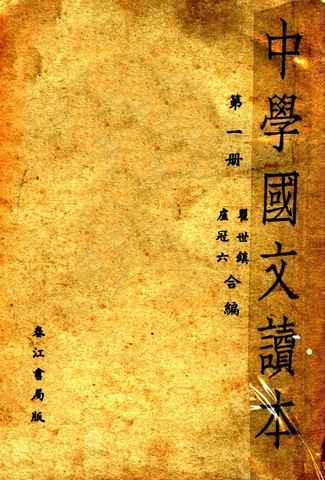 中學國文讀本
第一册
瞿世鎮
盧冠六
合編
春江書局版